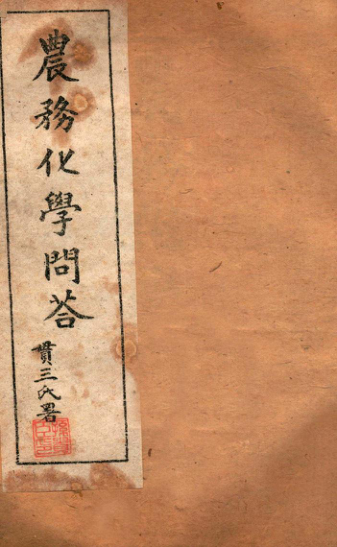 農務化學問荅
貫三氏署